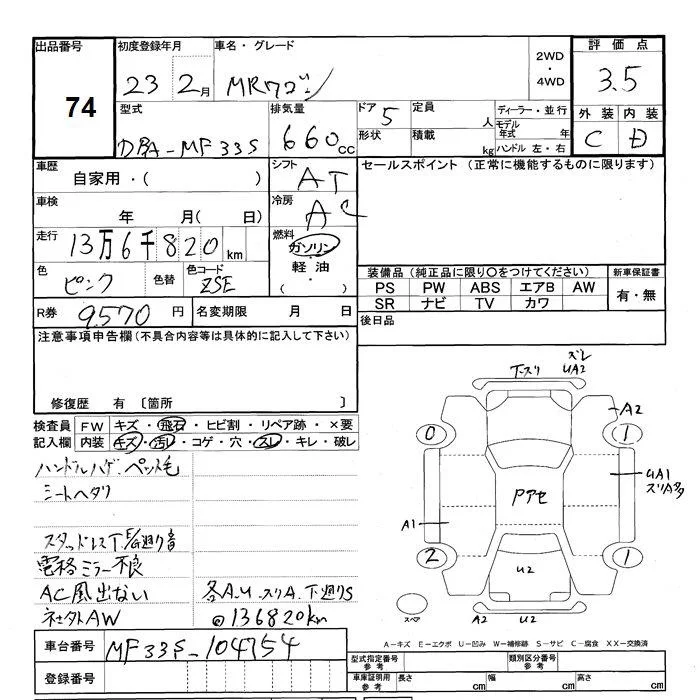 出品番号
74
初度登録年月
23 2月
車名・グレード
MRワゴン
2WD
・
4WD
評価点
3.5
外装 内装
C D
型式
DBA-MF33S
排気量
660cc
ドア 5
形状
定員
人
積載
kg
ディーラー・並行
モデル年式 年
ハンドル 左・右
車歴
自家用・( )
シフト
AT
車検
年 月( 日)
冷房
AC
走行
13万6千820km
燃料
ガソリン
軽油
・
( )
色
ピンク
色替
色コード
ZSE
R券 9570円
名変期限 月 日
セールスポイント (正常に機能するものに限ります)
装備品(純正品に限り○をつけてください)
PS PW ABS エアB AW
SR ナビ TV カワ
新車保証書
有・無
後日品
注意事項申告欄(不具合内容等は具体的に記入して下さい)
修復歴 有 〔箇所 〕
検査員記入欄
FW キズ・飛石・ヒビ割・リペア跡・×要
内装 キズ・汚レ・コゲ・穴・スレ・キレ・破レ
ハンドルハゲ、ペット毛
シートヘタリ
スタッドレスT、F/G廻り音
電格ミラー不良
AC風出ない
社外AW
各A.U スリA.下廻りS
@136820km
車台番号 MF33S-104754
登録番号
下スリ
ズレ
UA2
A2
0
1
UA1
スリA多
Pアセ
A1
2
1
U2
スペア
A2 U2
A-キズ E-エクボ U-凹み W-補修跡 S-サビ C-腐食 XX-交換済
型式指定番号
参考
類別区分番号
参考
車庫証明用
参考
長さ cm
幅 cm
高さ cm